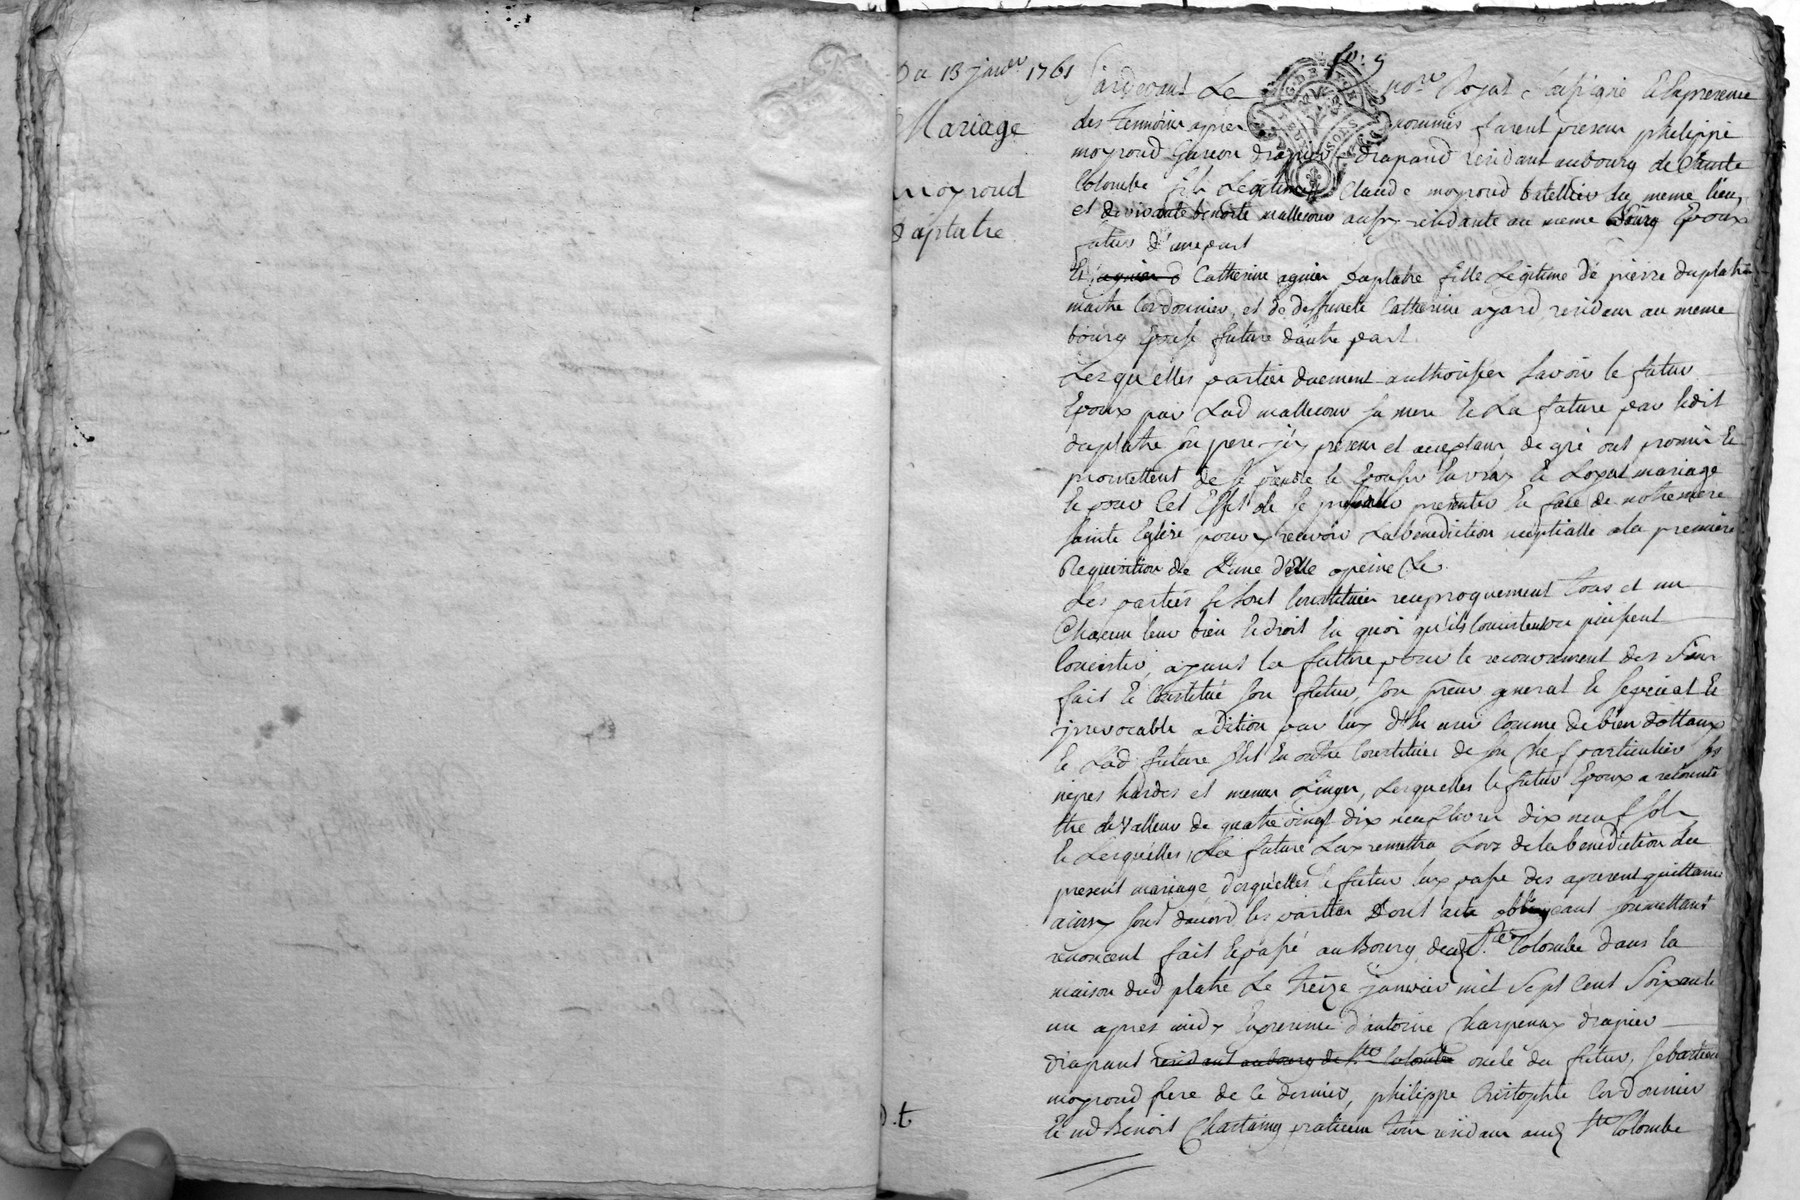 Du 13 janer 1761
Mariage
moyroud
Daplatre
fo. 5
Pardevant Le nore Royal soussigné Et la presence
des temoins apres nommés furent presens philippe
moyroud garcon drapier drapand residant au bourg de Sainte
Colombe fils Legitime Claude moyroud batellier du meme lieu,
et de vivante benoite mallecour aussy residante au meme Bourg Epoux
futur d'une part
Et Catherine agnier Daplatre fille Legitime de pierre duplatre
maitre Cordonnier, et de deffuncte Catherine ayard, residens au meme
bourg Epouse future d'autre part.
Lesquelles parties duement authorisées savoir le futur
Epoux par Lad mallecour sa mere Et La future par ledit
duplatre son pere icy presens et acceptans, de gré ont promis Et
promettent de se prendre et Epouser En vray Et Loyal mariage
Et pour Cet Effet de se presenter En face de notre mere
sainte Eglise pour y recevoir La benediction nuptialle a la premiere
Requisition de L'une d'elle a peine Ce
Les parties se sont Constituées reciproquement tous et un
Chacun leur bien Et droit En quoi qu'ils Consistent ou puissent
Concister, ayant la future pour le recouvrement des siens
fait Et Constitué son futur, son preur general Et special Et
irrevocable a dition par luy d'En user Comme de bien dottaux
Et Lad future s'est En outre Constituée de son Chef particulier ses
nippes hardes et menus Linges, Lesquelles le futur Epoux a reconnu
Etre de Valleur de quatre vingt dix neuf livres dix neuf sols
Et Lesquelles La future Luy remettra Lors de la benediction du
present mariage desquelles le futur luy passe des apresent quittance
ainsy sont d'acord les parties Dont acte obligeant soumettant
renoncent fait Et passé au Bourg dud Ste Colombe dans la
maison dud platre Le treize janvier mil Sept Cent Soixante
un apres midy En presence d'antoine Charpenay drapier
drapant residant au bourg de Ste Colombe oncle du futur, Sebastien
moyroud frere de Ce dernier, philippe Cristophle Cordonnier
Et md Benoit Chartamy praticien tous residans aud Ste Colombe
D.t